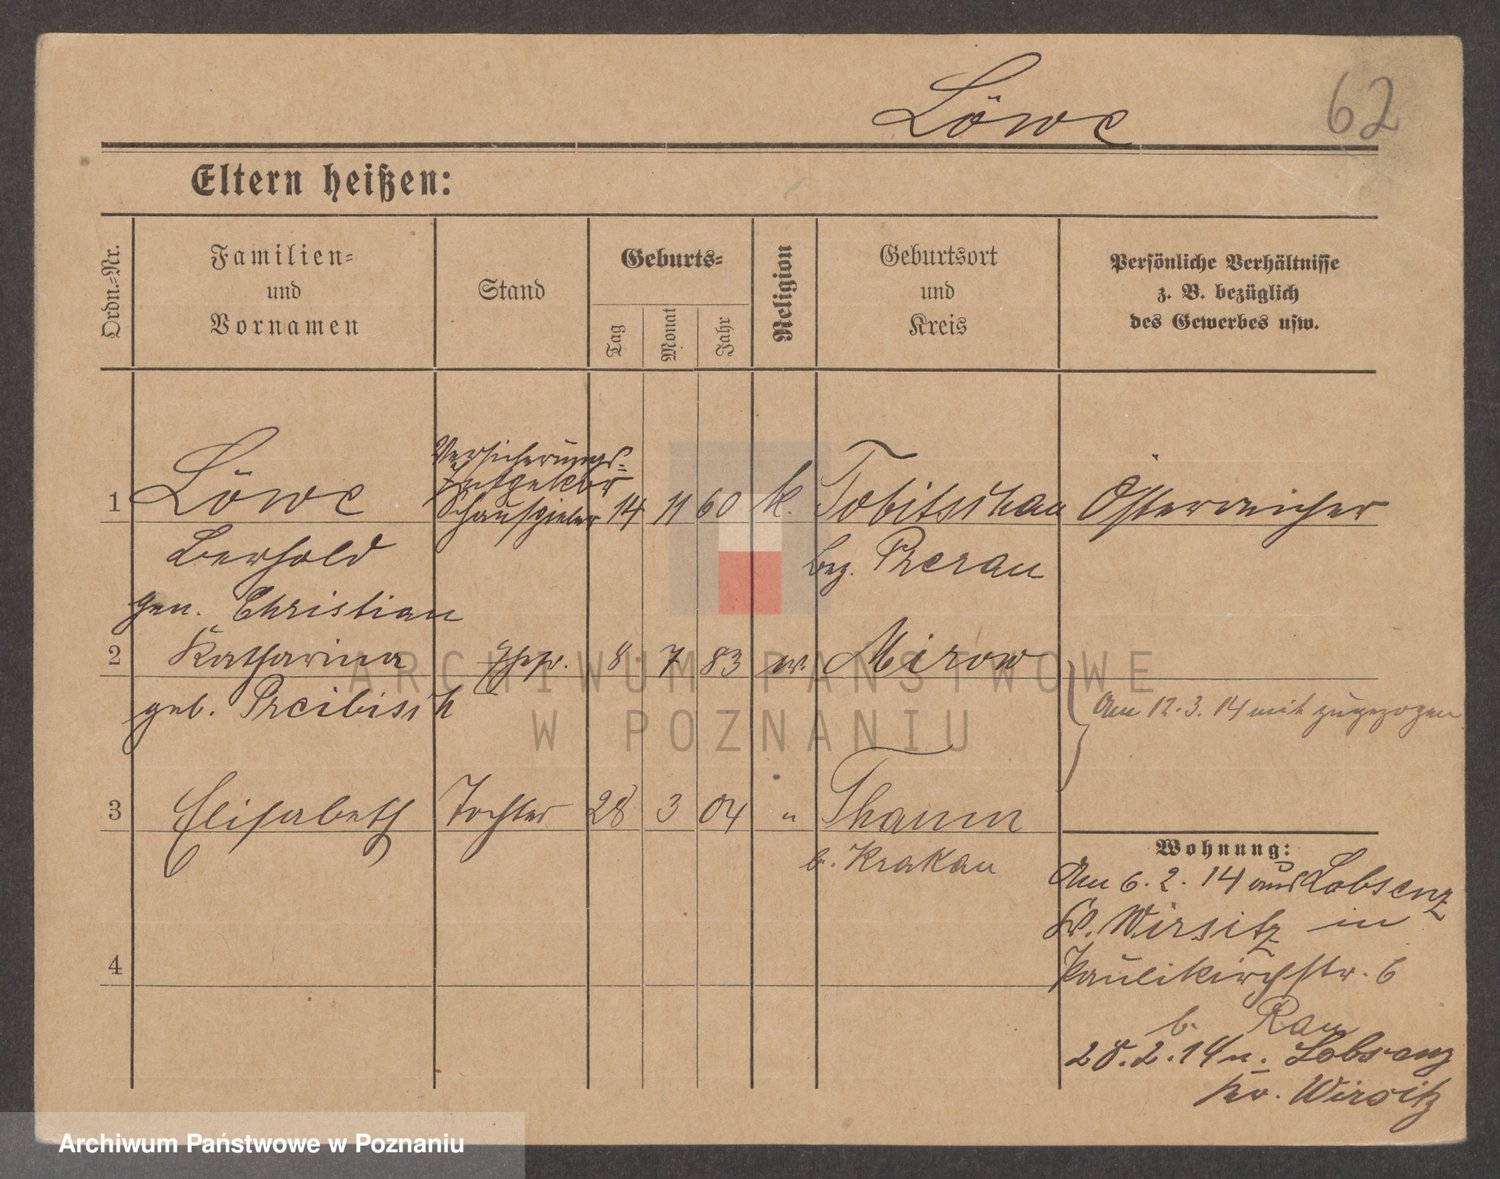 Löwe
62
Eltern heißen:
Ordn.=Nr.
Familien=
und
Vornamen
Stand
Geburts=
Tag
Monat
Jahr
Religion
Geburtsort
und
Kreis
Persönliche Verhältnisse
z. B. bezüglich
des Gewerbes usw.
Versicherungs=
Inspektor
1 Löwe Schauspieler 14 11 60 k. Tobitschau Österreicher
Berthold bez. Prerau
gen. Christian
2 Katharina Ehefr. 8 7 83 ev. Mirow
geb. Preibisch
Am 12.3.14 mit zugezogen
3 Elisabeth Tochter 28 3 04 " Thamm
b. Krakau
4
Wohnung:
Am 6.2.14 aus Lobsenz
Kr. Wirsitz in
Paulikirchstr. 6
b. Rau
28.2.14 n. Lobsenz
Kr. Wirsitz
ARCHIWUM PAŃSTWOWE
W POZNANIU
Archiwum Państwowe w Poznaniu